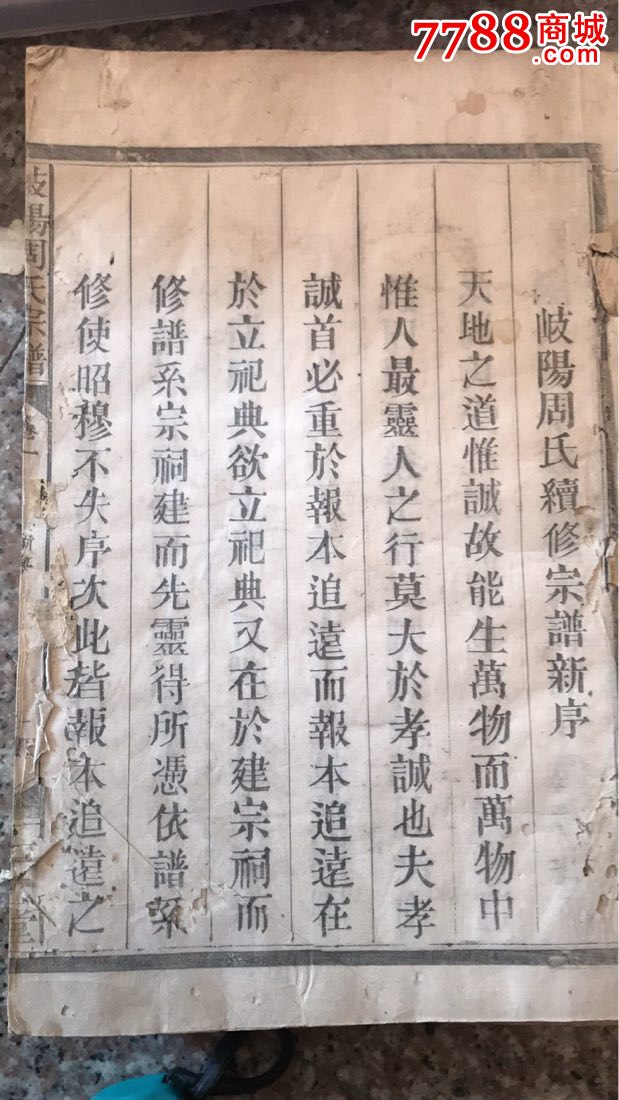 7788商城
岐陽周氏續修宗譜新序
天地之道惟誠故能生萬物而萬物中
惟人最靈人之行莫大於孝誠也夫孝
誠首必重於報本追遠而報本追遠在
於立祀典欲立祀典又在於建宗祠而
修譜系宗祠建而先靈得所憑依譜系
修使昭穆不失序次此皆報本追遠之
岐陽周氏宗譜
卷一
新序